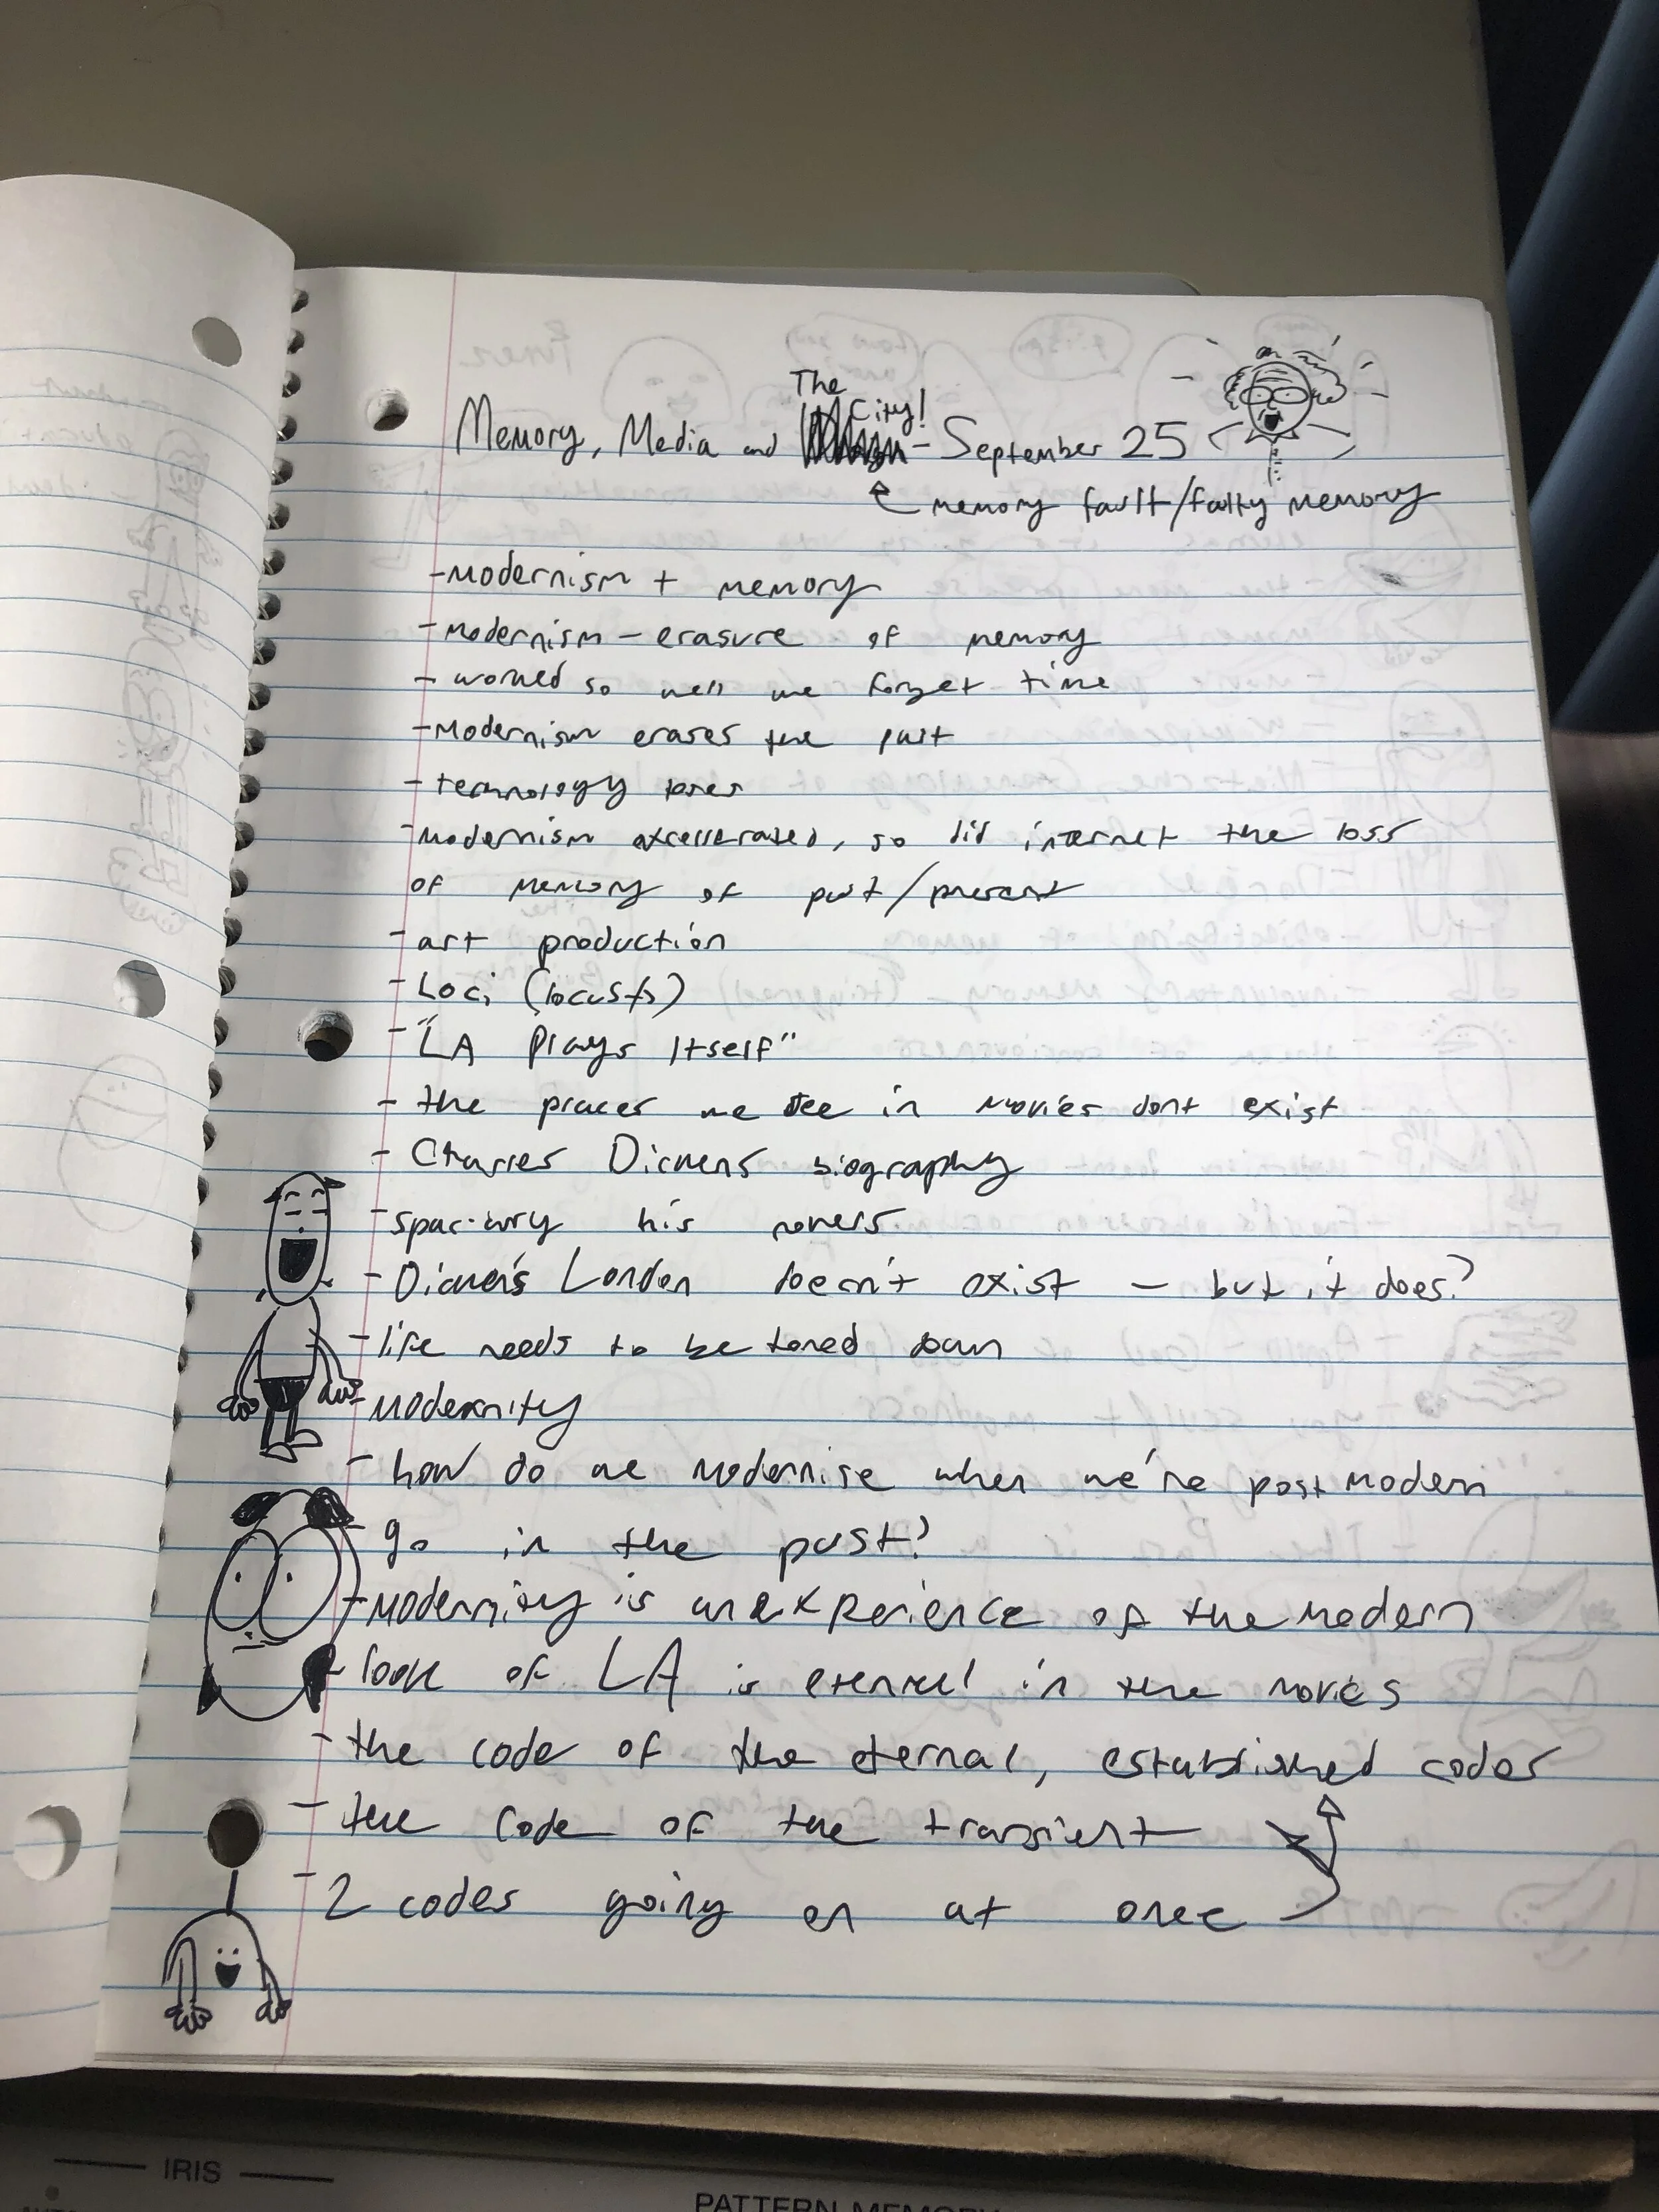 The
City!
Memory, Media and - September 25
memory fault/faulty memory
- Modernism + memory
- Modernism - erasure of memory
- worked so well we forget time
- Modernism erases the past
- technology
- Modernism excellerated, so did internet the loss
of memory of past/present
- art production
- Loci (locusts)
- "LA Plays Itself"
- the places we see in movies dont exist
- Charles Dickens biography
- his novels
- Dicken's London doesn't exist - but it does?
- life needs to be toned down
- Modernity
- how do we modernise when we're post modern
- go in the past?
- Modernity is an experience of the modern
- look of LA is eternal in the movies
- the code of the eternal, established codes
- the code of the transient
- 2 codes going on at once
IRIS
PATTERN MEMORY